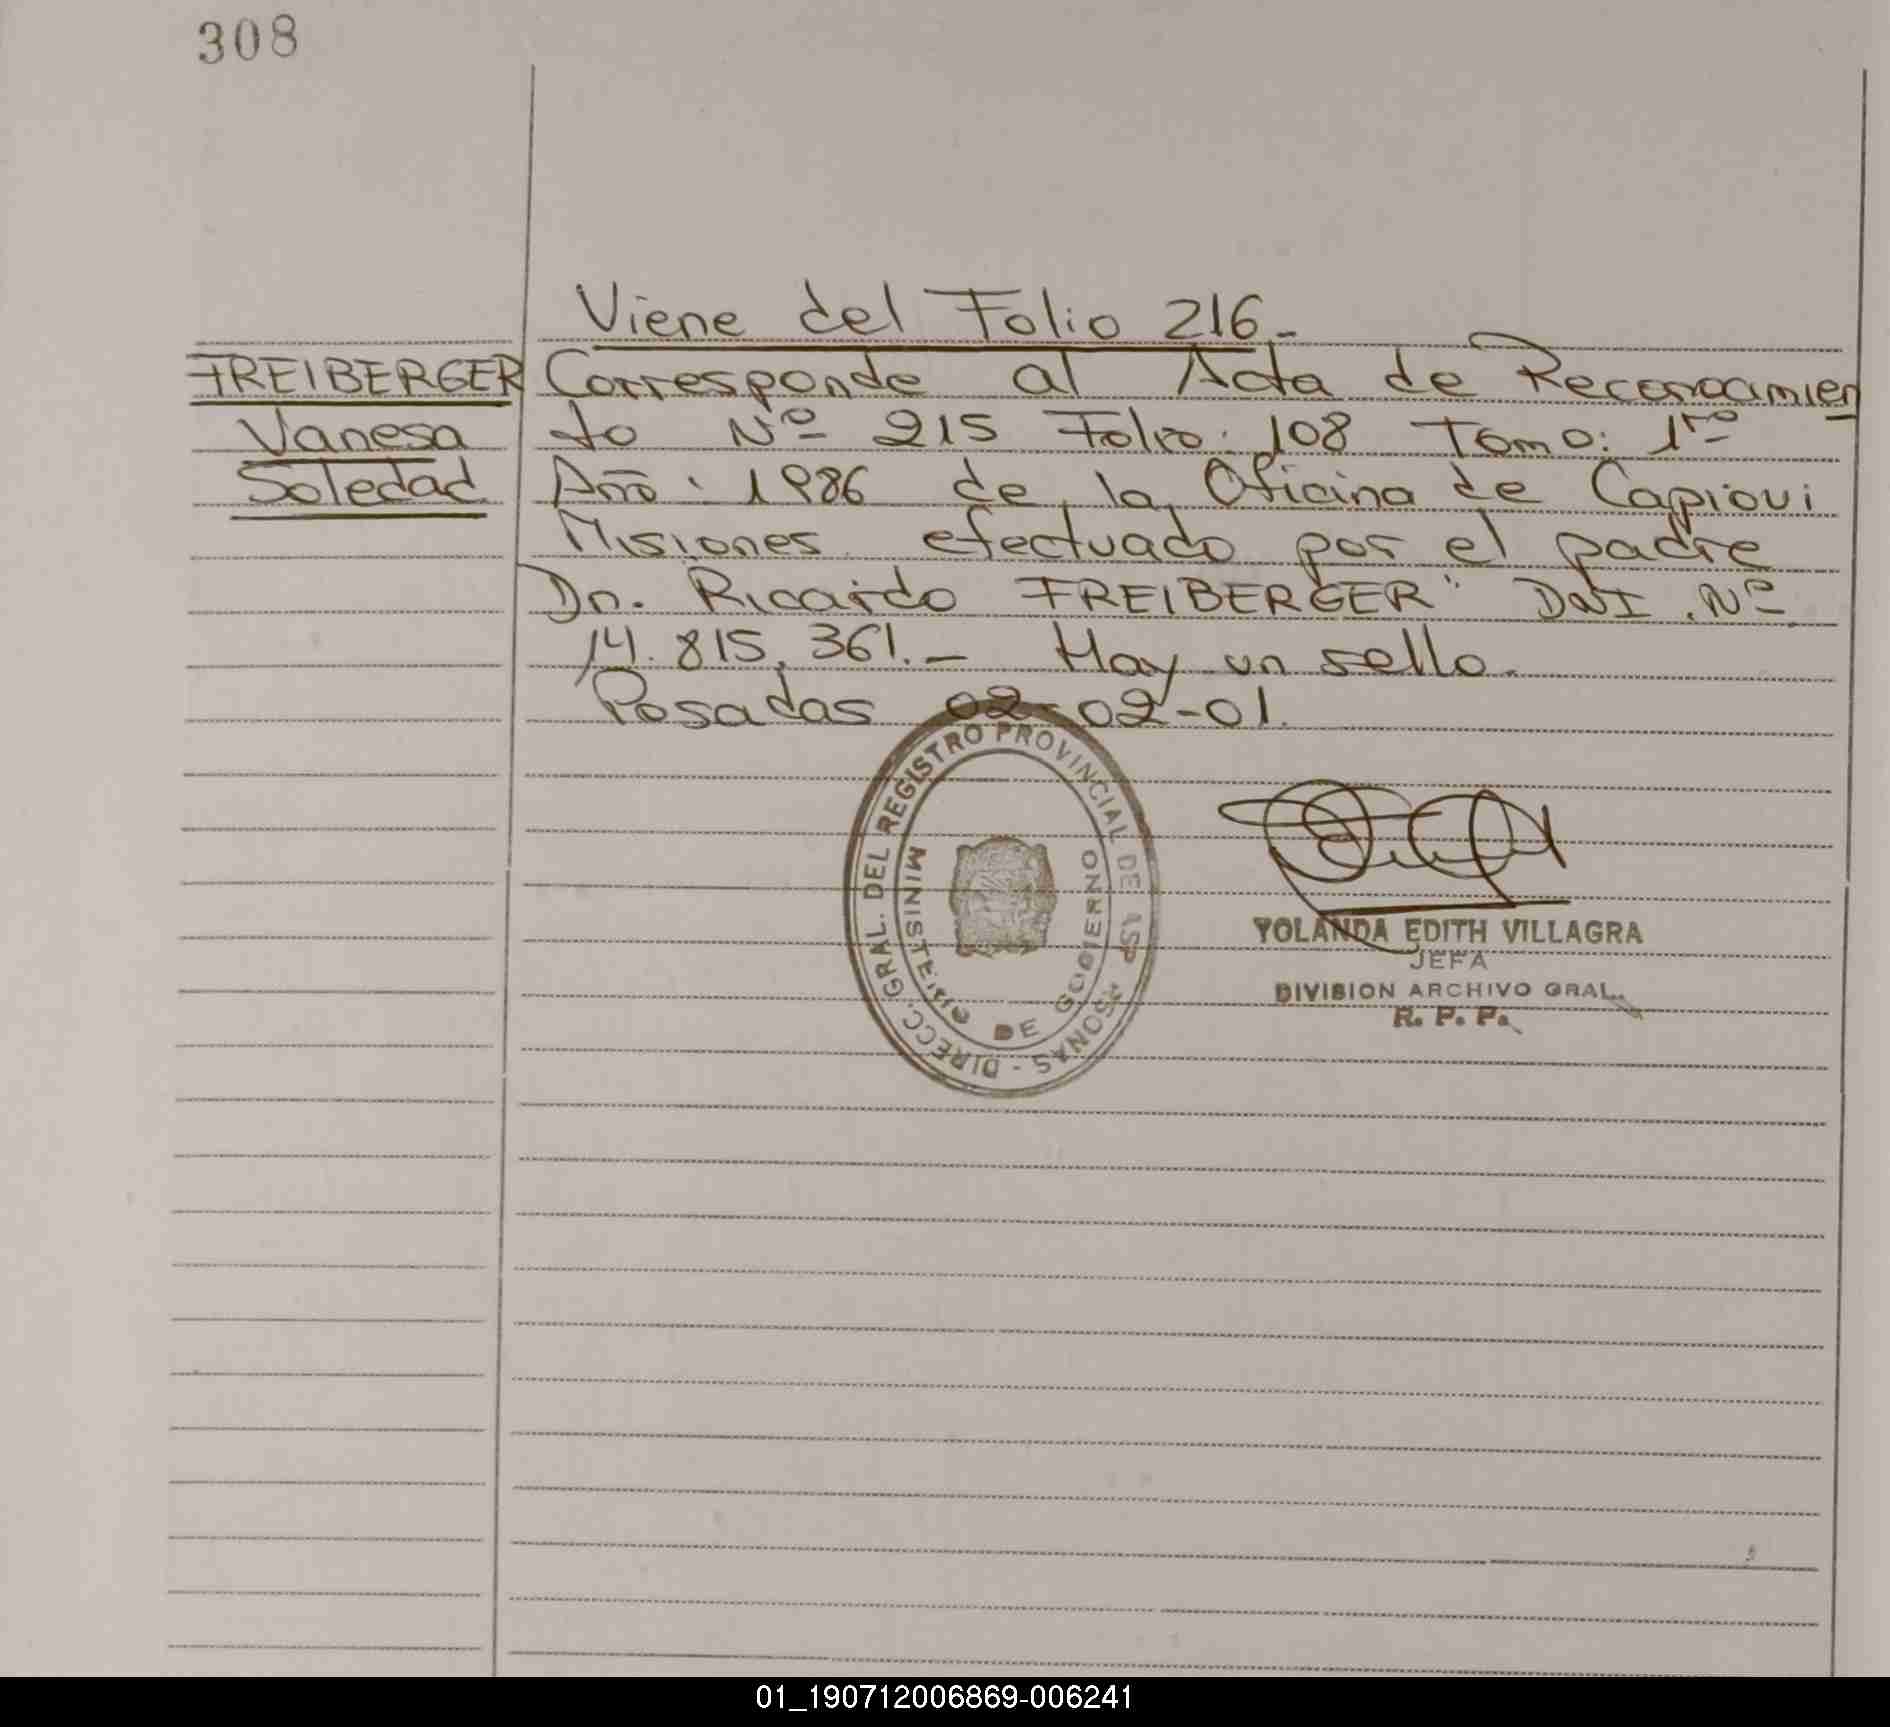 308
Viene del Folio 216-
FREIBERGER
Vanesa
Soledad
Corresponde al Acta de Reconocimien
to Nº 215 Folio: 108 Tomo: 1ro
Año: 1986 de la Oficina de Capiovi
Misiones efectuado por el padre
Dn. Ricardo FREIBERGER" DNI. Nº
14.815.361.- Hay un sello.
Posadas 02-02-01.
DIRECC. GRAL. DEL REGISTRO PROVINCIAL DE LAS PERSONAS -
MINISTERIO DE GOBIERNO
YOLANDA EDITH VILLAGRA
JEFA
DIVISION ARCHIVO GRAL.
R. P. P.
01_190712006869-006241